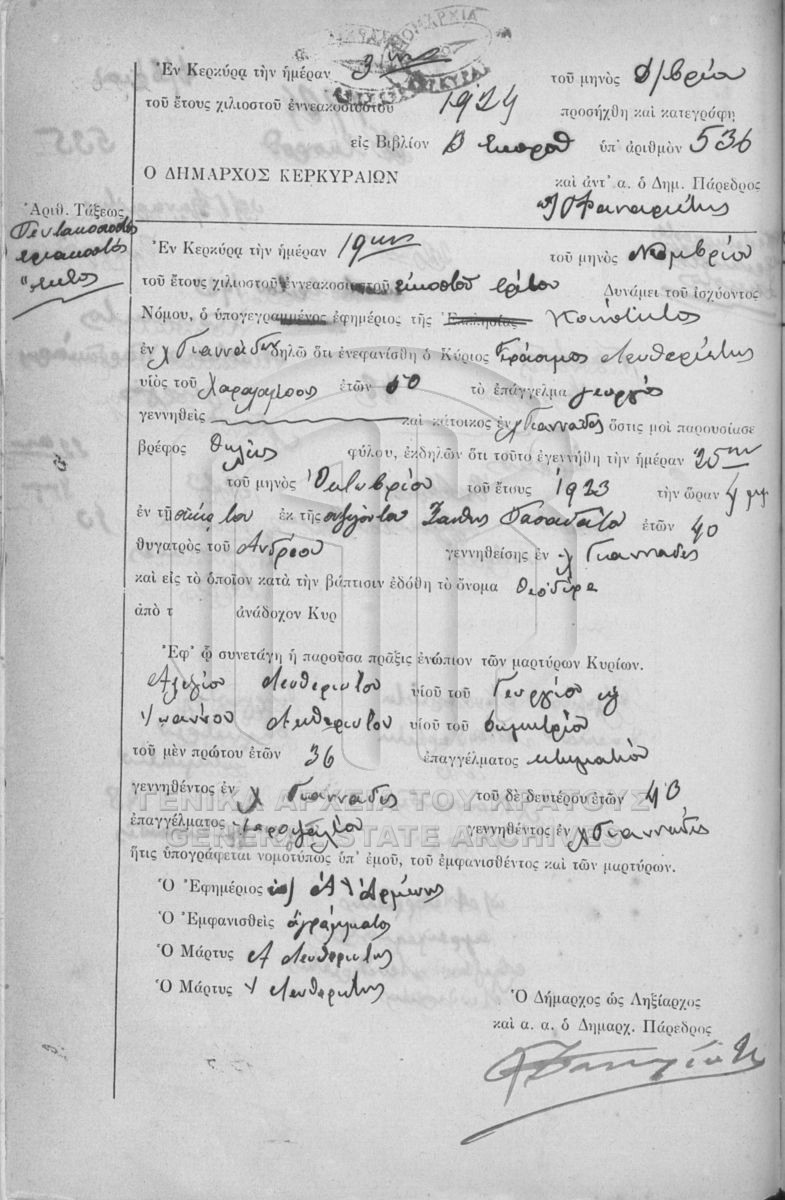 Ἐν Κερκύρᾳ τὴν ἡμέραν 3 τοῦ μηνὸς
τοῦ ἔτους χιλιοστοῦ ἐννεακοσιοστοῦ 1924 προσήχθη καὶ κατεγράφη
εἰς Βιβλίον ὑπ' ἀριθμὸν 536
Ο ΔΗΜΑΡΧΟΣ ΚΕΡΚΥΡΑΙΩΝ καὶ ἀντ' α. ὁ Δημ. Πάρεδρος
Ἀριθ. Τάξεως
Πεντακοσιοστὸς
τριακοστὸς
ἕκτος
Ἐν Κερκύρᾳ τὴν ἡμέραν 19 τοῦ μηνὸς Νοεμβρίου
τοῦ ἔτους χιλιοστοῦ ἐννεακοσιοστοῦ εἰκοστοῦ τρίτου Δυνάμει τοῦ ἰσχύοντος
Νόμου, ὁ ὑπογεγραμμένος ἐφημέριος τῆς Ἐκκλησίας Κοινότητος
ἐν χ Γιαννάδες δηλῶ ὅτι ἐνεφανίσθη ὁ Κύριος Γεράσιμος Λευθεριώτης
υἱὸς τοῦ Χαραλάμπους ἐτῶν 50 τὸ ἐπάγγελμα γεωργὸς
γεννηθεὶς καὶ κάτοικος ἐν χ Γιαννάδες ὅστις μοὶ παρουσίασε
βρέφος θήλεος φύλου, ἐκδηλῶν ὅτι τοῦτο ἐγεννήθη τὴν ἡμέραν 25ην
τοῦ μηνὸς Ὀκτωβρίου τοῦ ἔτους 1923 τὴν ὥραν 4 μμ
ἐν τῇ οἰκίᾳ του ἐκ τῆς συζύγου του Ξάνθης ἐτῶν 40
θυγατρὸς τοῦ Ἀνδρέου γεννηθείσης ἐν χ Γιαννάδες
καὶ εἰς τὸ ὁποῖον κατὰ τὴν βάπτισιν ἐδόθη τὸ ὄνομα Θεοδώρα
ἀπὸ τ ἀνάδοχον Κυρ
Ἐφ' ᾧ συνετάγη ἡ παροῦσα πρᾶξις ἐνώπιον τῶν μαρτύρων Κυρίων.
Ἀλεξίου Λευθεριώτου υἱοῦ τοῦ Γεωργίου
Ἰωάννου Λευθεριώτου υἱοῦ τοῦ Δημητρίου
τοῦ μὲν πρώτου ἐτῶν 36 ἐπαγγέλματος κτηματίου
γεννηθέντος ἐν χ Γιαννάδες τοῦ δὲ δευτέρου ἐτῶν 40
ΓΕΝΙΚΑ ΑΡΧΕΙΑ ΤΟΥ ΚΡΑΤΟΥΣ
ἐπαγγέλματος γεννηθέντος ἐν χ Γιαννάδες
GENERAL STATE ARCHIVES
ἥτις ὑπογράφεται νομοτύπως ὑπ' ἐμοῦ, τοῦ ἐμφανισθέντος καὶ τῶν μαρτύρων.
Ὁ Ἐφημέριος
Ὁ Ἐμφανισθεὶς ἀγράμματος
Ὁ Μάρτυς Α Λευθεριώτης
Ὁ Μάρτυς Ι Λευθεριώτης
Ὁ Δήμαρχος ὡς Ληξίαρχος
καὶ α. α. ὁ Δημαρχ. Πάρεδρος